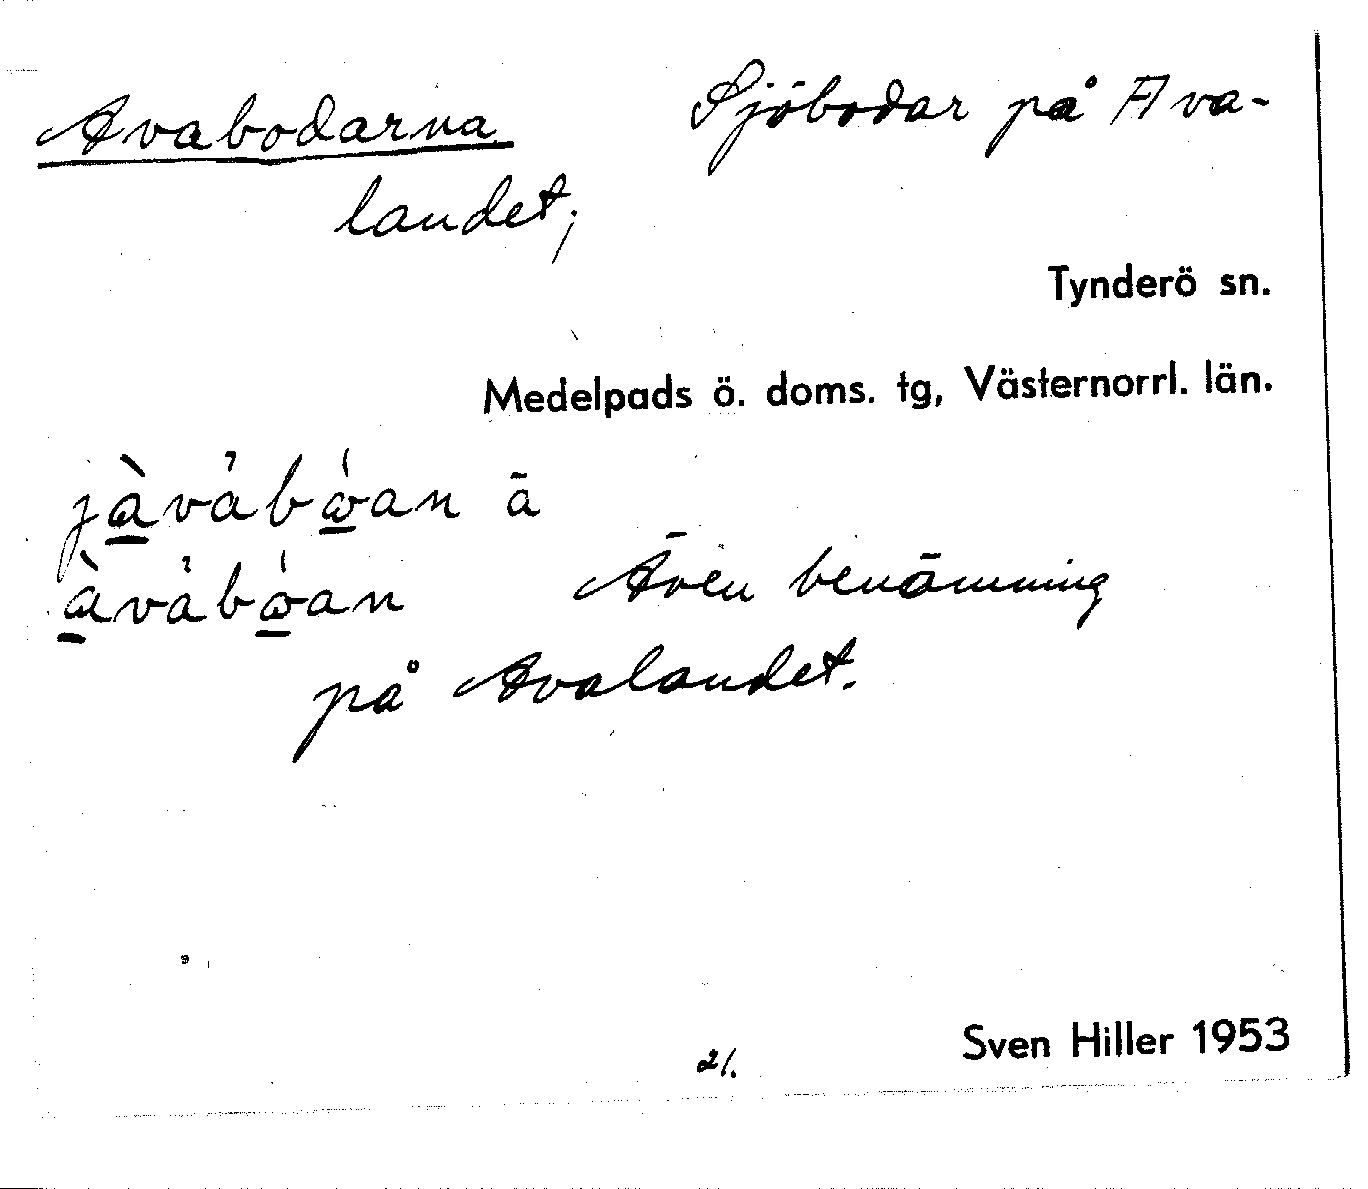 Avabodarna Sjöbodar på Ava-
landet;
Tynderö sn.
Medelpads ö. doms. tg, Västernorrl. län.
jàvåbω̇́an ā
àvåbω̇́an Även benämning
på Avalandet.
21.
Sven Hiller 1953